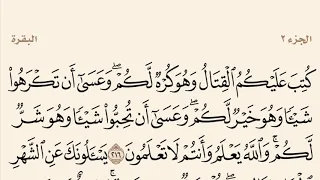 الجزء ٢ البقرة
كُتِبَ عَلَيْكُمُ ٱلْقِتَالُ وَهُوَ كُرْهٌ لَّكُمْ ۖ وَعَسَىٰٓ أَن تَكْرَهُوا۟
شَيْـًٔا وَهُوَ خَيْرٌ لَّكُمْ ۖ وَعَسَىٰٓ أَن تُحِبُّوا۟ شَيْـًٔا وَهُوَ شَرٌّ
لَّكُمْ ۗ وَٱللَّهُ يَعْلَمُ وَأَنتُمْ لَا تَعْلَمُونَ ٢١٦ يَسْـَٔلُونَكَ عَنِ ٱلشَّهْرِ